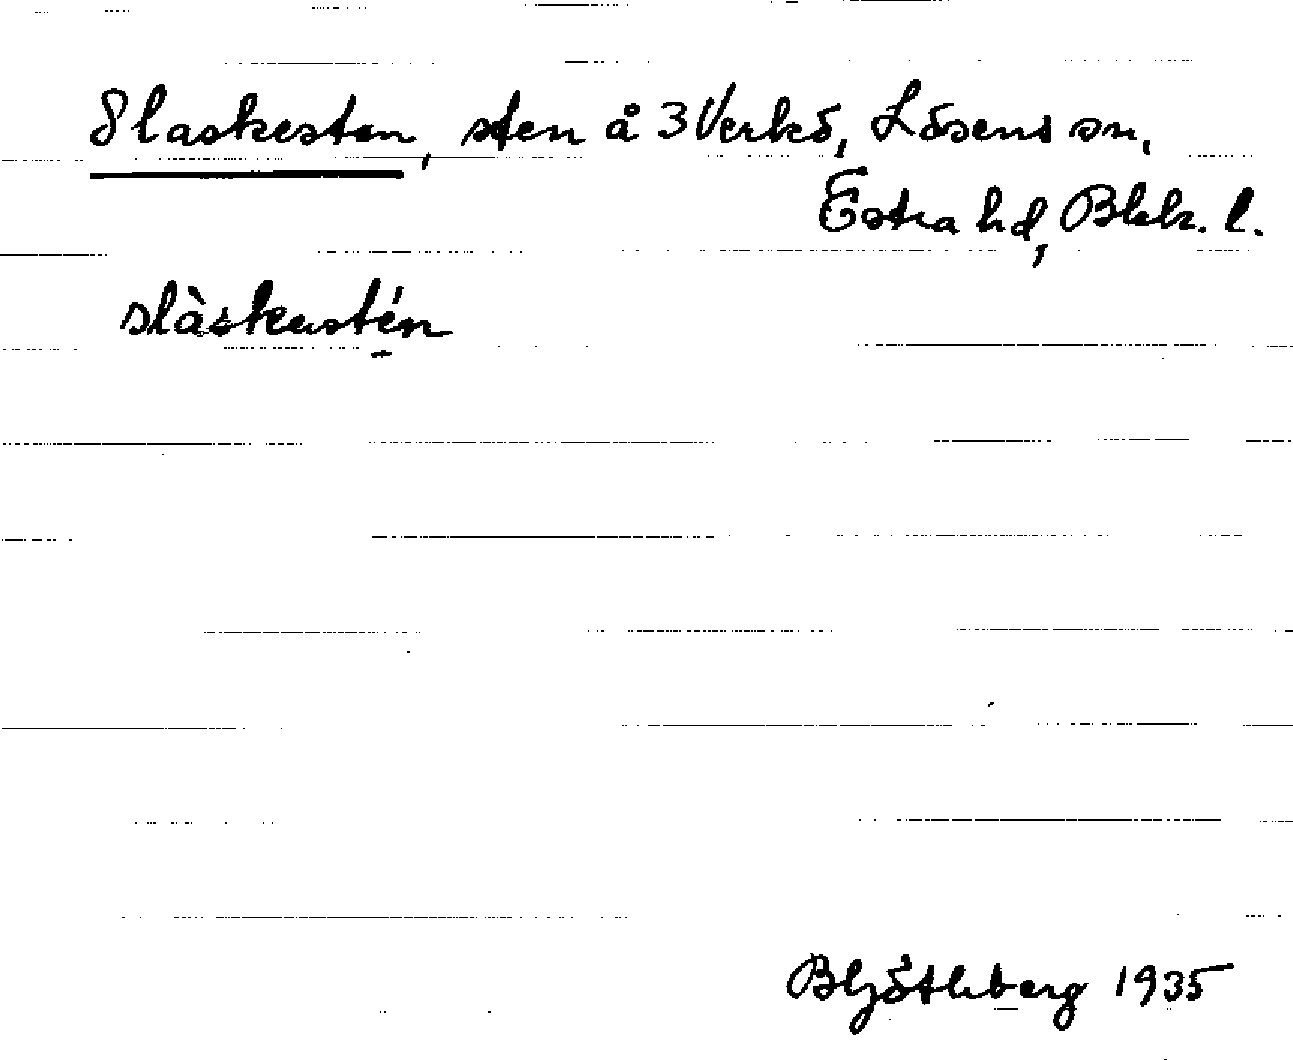 Slaskesten, sten å 3 Verkö, Lösens sn,
Östra hd, Blek. l.
slàskestén
B Hj Göthberg 1935